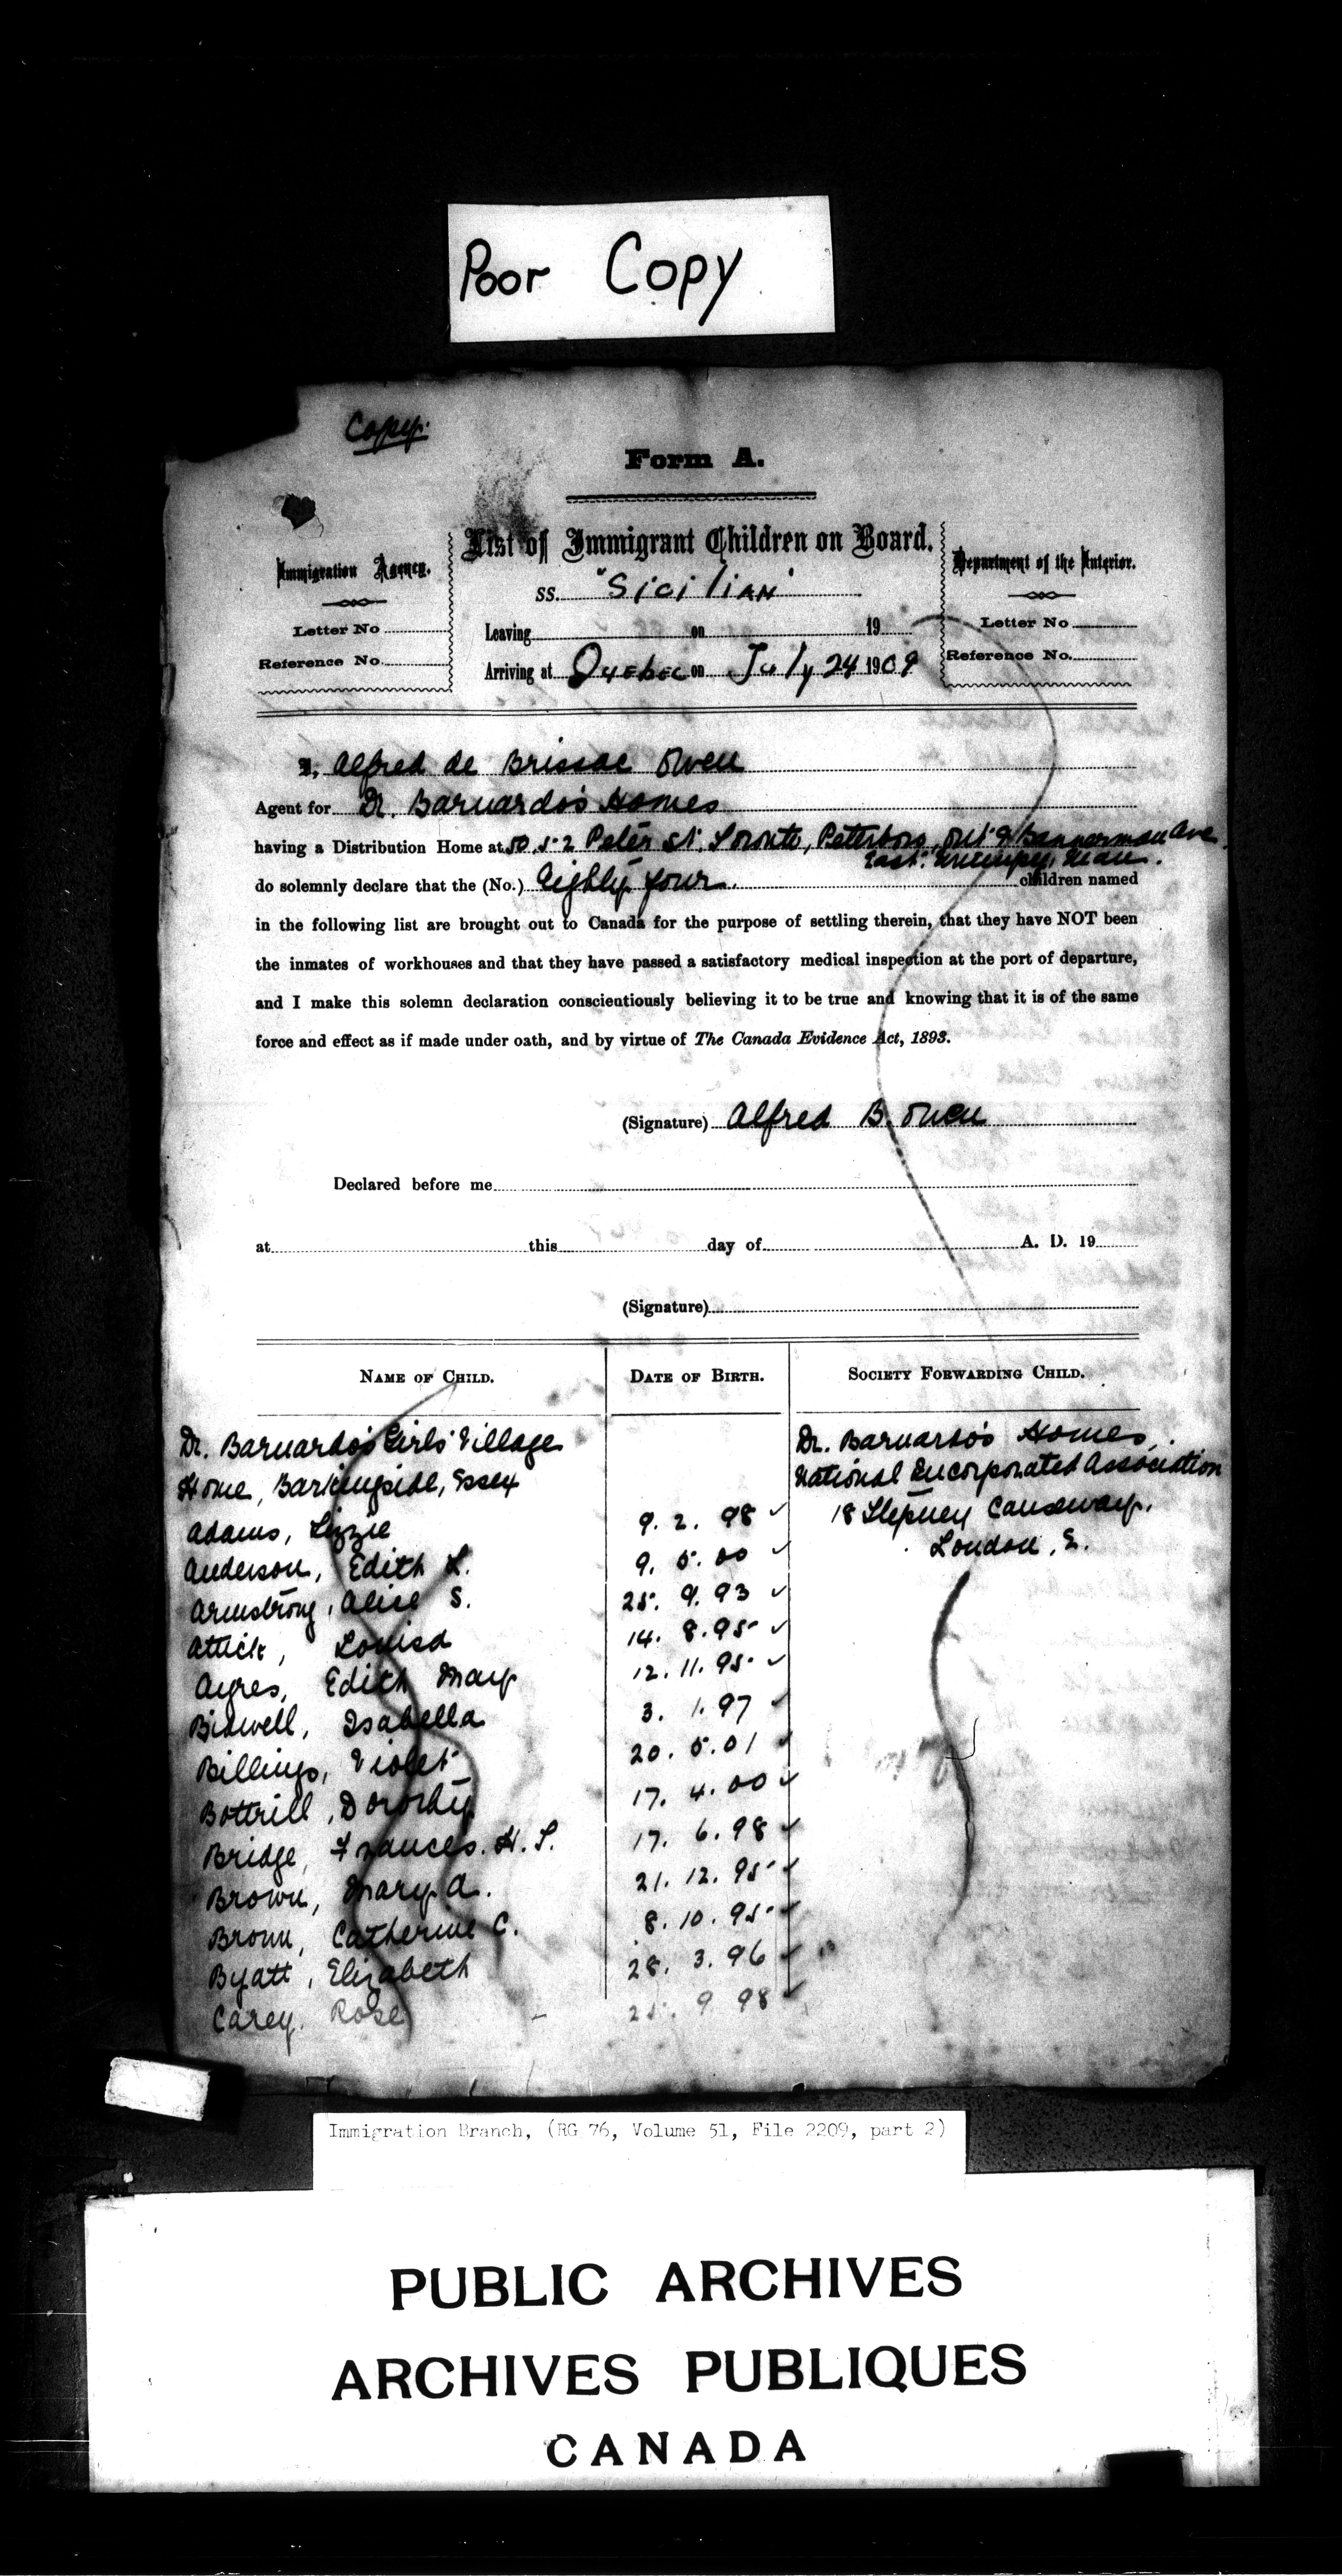 Poor Copy
Copy.
Form A.
List of Immigrant Children on Board.
Immigration Agency.
Department of the Interior.
SS. "Sicilian"
Letter No
Letter No
Leaving on 19
Reference No.
Reference No.
Arriving at Quebec on July 24 1909
I, Alfred de Brissac Owen
Agent for Dr. Barnardo's Homes
having a Distribution Home at 50.52 Peter St. Toronto, Peterboro, Ont & Bannerman Ave.
East. Winnipeg, Man.
do solemnly declare that the (No.) Eighty four. children named
in the following list are brought out to Canada for the purpose of settling therein, that they have NOT been
the inmates of workhouses and that they have passed a satisfactory medical inspection at the port of departure,
and I make this solemn declaration conscientiously believing it to be true and knowing that it is of the same
force and effect as if made under oath, and by virtue of The Canada Evidence Act, 1893.
(Signature) Alfred B. Owen
Declared before me
at this day of A. D. 19
(Signature)
NAME OF CHILD. DATE OF BIRTH. SOCIETY FORWARDING CHILD.
Dr. Barnardo's Girls' Village Dr. Barnardo's Homes,
Home, Barkingside, Essex National Incorporated Association
Adams, Lizzie 9. 2. 98 ✓ 18 Stepney Causeway.
Anderson, Edith L. 9. 5. 00 ✓ London, E.
Armstrong, Alice S. 25. 9. 93 ✓
Attick, Louisa 14. 8. 95 ✓
Ayres, Edith May 12. 11. 95 ✓
Bidwell, Isabella 3. 1. 97 ✓
Billings, Violet 20. 5. 01 ✓
Bottrill, Dorothy 17. 4. 00 ✓
Bridge, Frances. H. S. 17. 6. 98 ✓
Brown, Mary A. 21. 12. 95 ✓
Brown, Catherine C. 8. 10. 95 ✓
Byatt, Elizabeth 28. 3. 96 ✓
Carey. Rose 9 98 ✓
Immigration Branch, (RG 76, Volume 51, File 2209, part 2)
PUBLIC ARCHIVES
ARCHIVES PUBLIQUES
CANADA